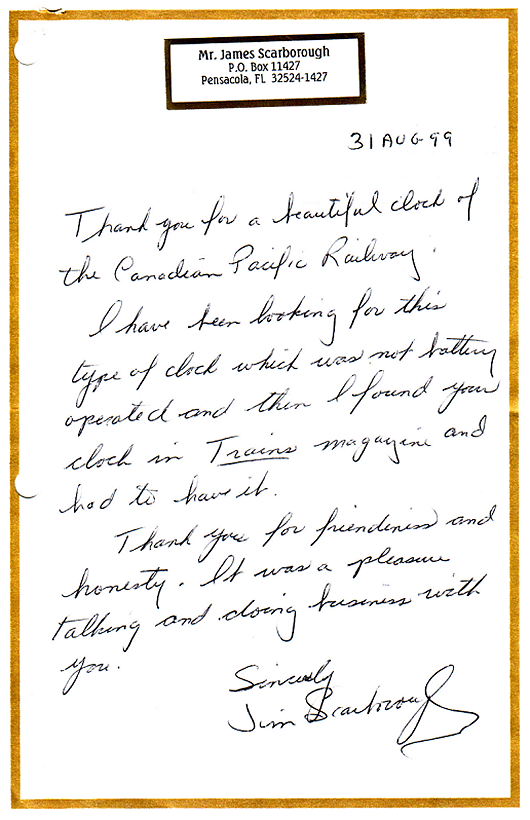 Mr. James Scarborough
P.O. Box 11427
Pensacola, FL 32524-1427
31 AUG 99
Thank you for a beautiful clock of
the Canadian Pacific Railway.
I have been looking for this
type of clock which was not battery
operated and then I found your
clock in Trains magazine and
had to have it.
Thank you for friendiness and
honesty. It was a pleasure
talking and doing business with
you.
Sincerely
Jim Scarborough